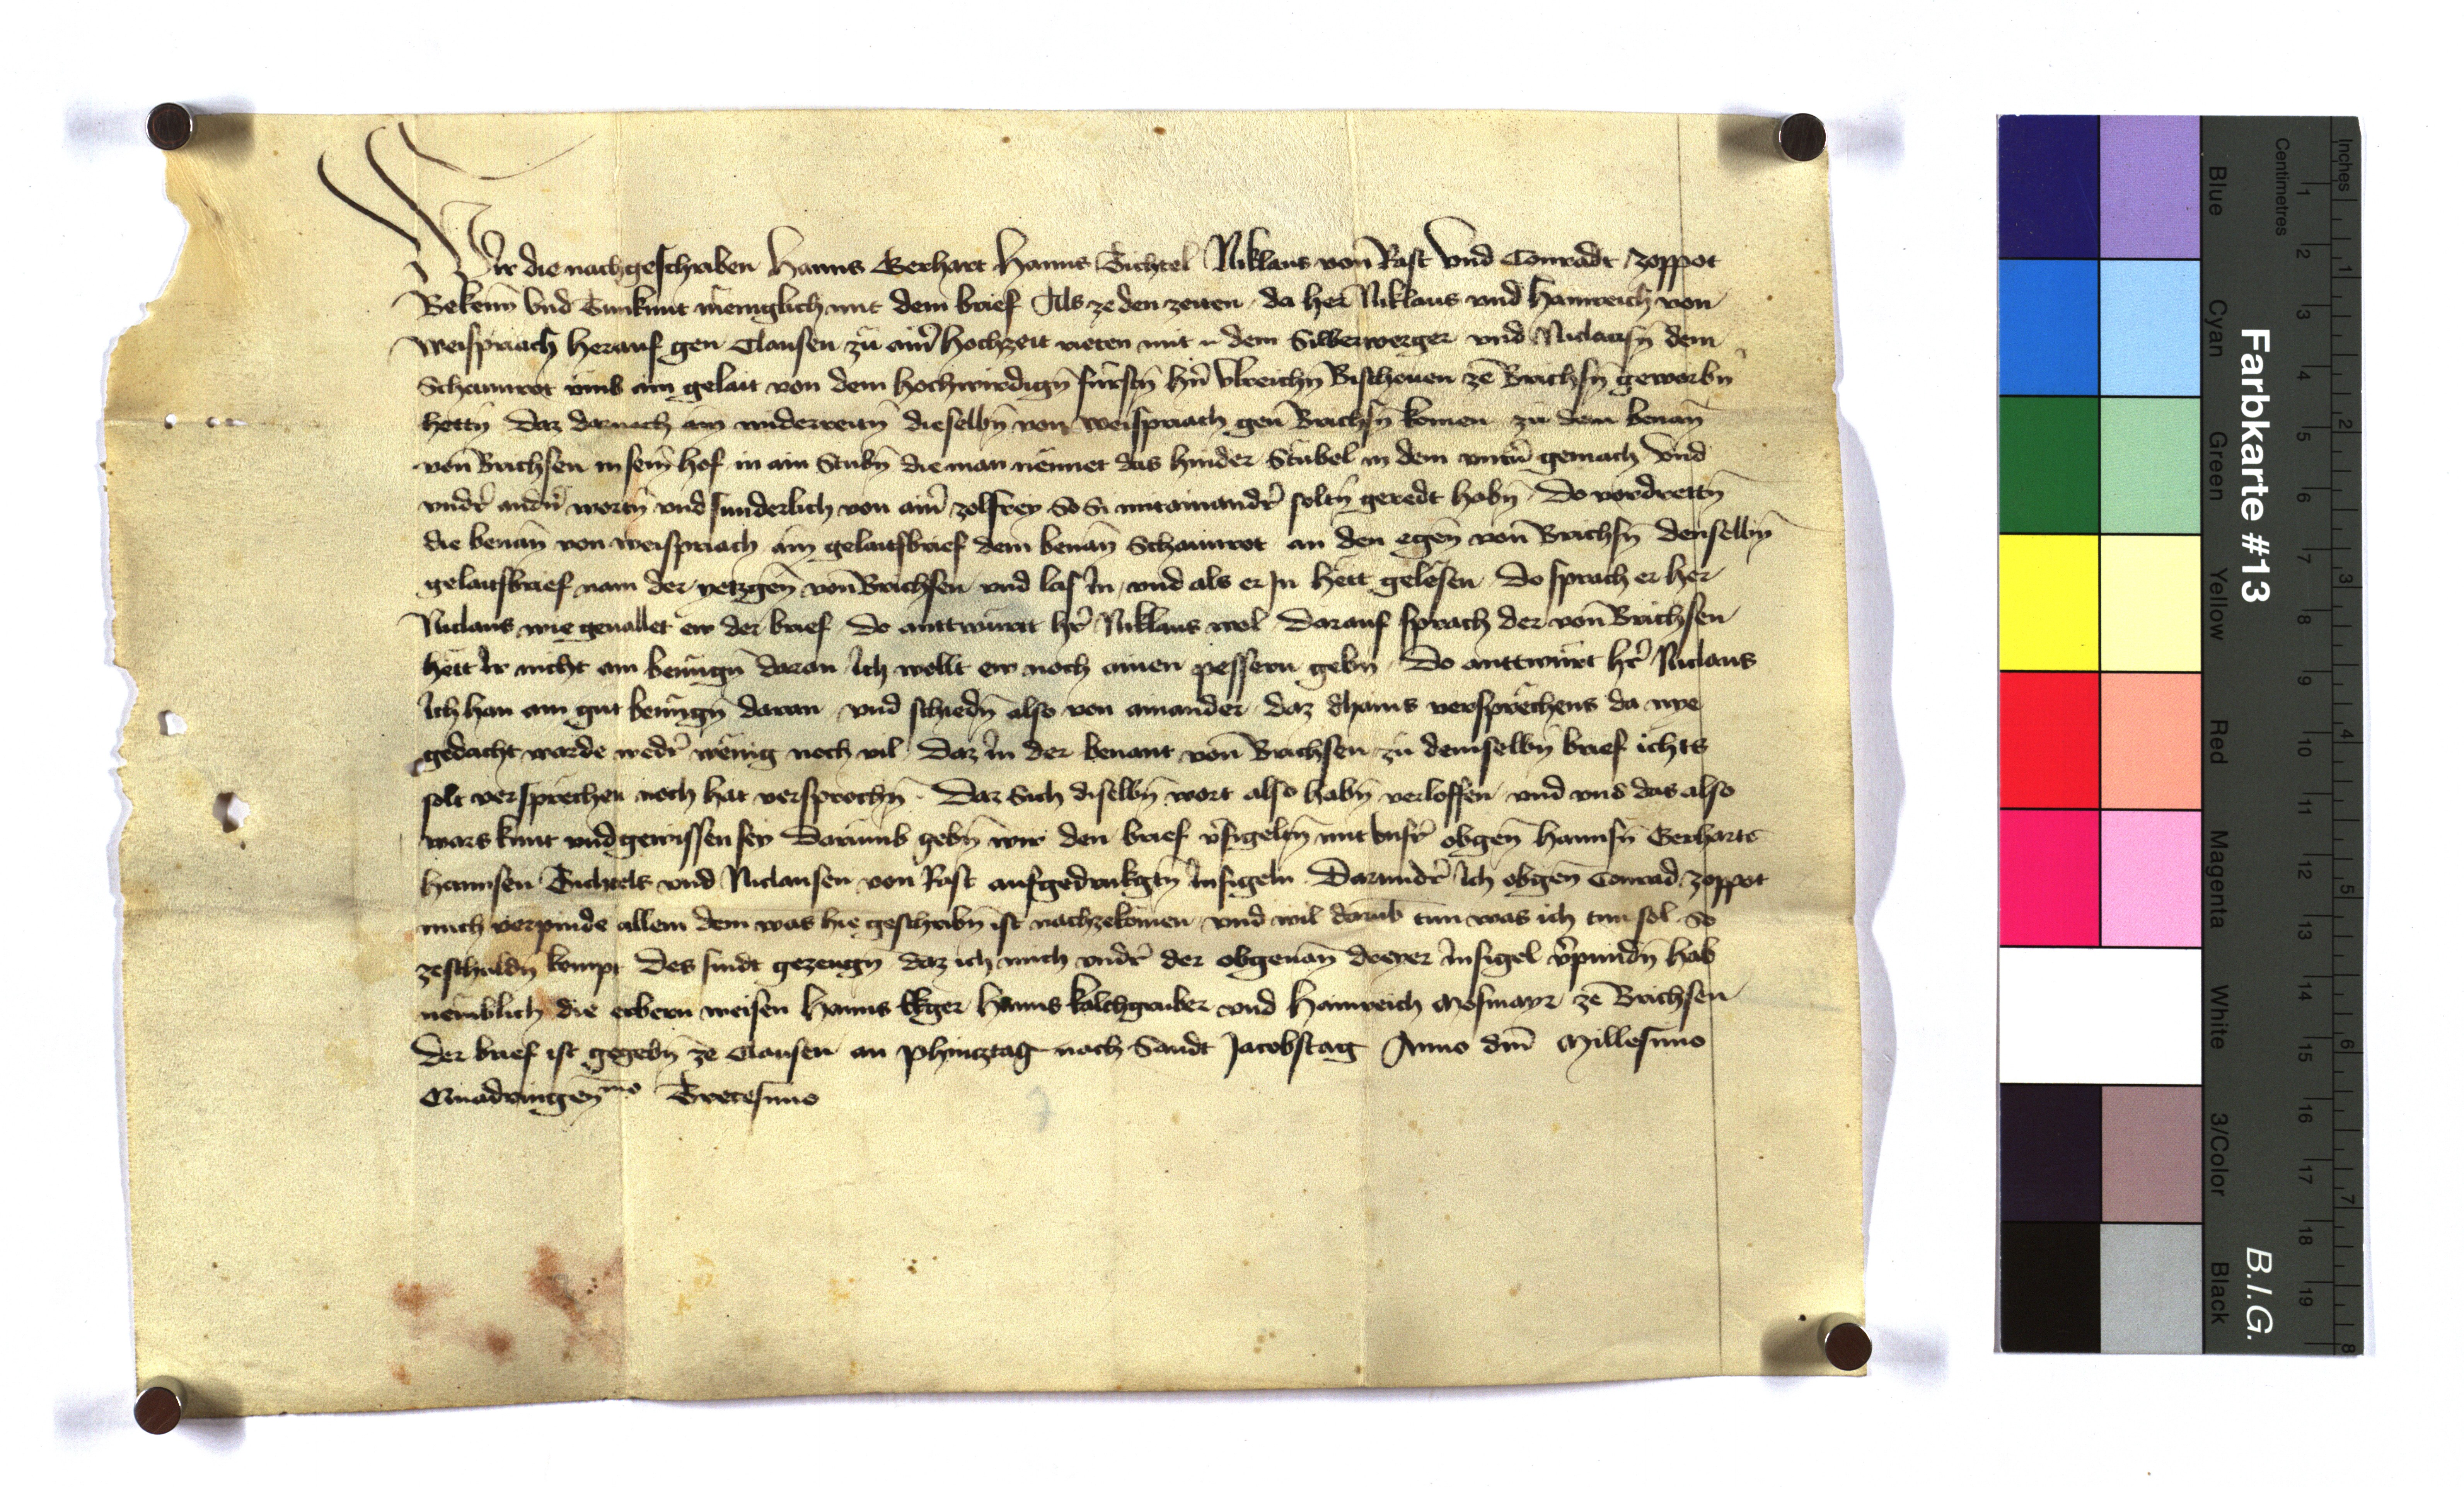 Wir die nachgeschriben Hanns Gerhart Hanns Tichtel Niklaus von Rast Vnd Conradt Zoppot
Bekenn̄ Vnd Tunkunt meniglich mit dem brief Als ze den zeiten da her Niklaus vnd Hainreich von
Weispriach herauf gen Clausen zu ainr hochzeit rieten mit dem Silberwerger vnd Niclausn̄ dem
Schaunrot vmb ain gelait von dem hochwirdign̄ fürstn̄ hn̄ Vlreichn̄ Bischouen ze Brichsn̄ geworbn̄
hettn̄ Daz darnach am widerreitn̄ dieselbn̄ von Weispriach gen Brichsn̄ komen zu dem benan̄
von Brichsen in sein hof in ain Stubn̄ die man nennet das hinder Stübel in dem vntn̄ gemach Vnd
vndr̄ andn̄ wortn̄ vnd sunderlich von ainr zolfrey So Si mitainandr̄ soltn̄ geredt habn̄ Do vordrettn̄
die benan̄ von weispriach ain gelaitsbrief dem benan̄ Schaunrot an den egen̄ von Brichsn̄ denselbn̄
gelaitsbrief nam der yetzgen̄ von Brichsen vnd las In vnd als er In hett gelesen Do sprach er her
Niclaus wie geuallet ew der brief Do anttwurtt hr̄ Niklaus wol Darauf sprach der von Brichsen
hett Ir nicht ain benügn̄ daran Ich wollt ew noch ainen pessern gebn̄ Do anttwurt hr̄ Niclaus
Ich han ain gut benügn̄ daran vnd schiedn̄ also von ainander daz dhains versprechens da nye
gedacht warde wedr̄ wenig noch vil Daz In der benant von Brichsen zu demselbn̄ brief ichts
solt versprechen noch hat versprochn̄ Daz Sich diselbn̄ wort also habn̄ verloffen vnd vns das also
wars kunt vnd gewissen sey Darumb gebn̄ wir den brief v̄sigeltn̄ mit vnsr̄ obgen̄ Hannsn̄ Gerharts
Hannsen Tichtels vnd Niclausen von Rast aufgedrukgtn̄ Insigeln Darundr̄ Ich obgen̄ Conrad Zoppot
mich verpinde allem dem was hie geschribn̄ ist nachzekomen vnd wil darub tun was ich tun sol So
zeschuldn̄ kompt Des sindt gezeugn̄ daz ich mich vndr̄ der obgenan̄ dreyer Insigel v̄pundn̄ hab
nemblich die erbern weisen Hanns Ekger Hanns kalchgruber vnd Hainreich Mesmayr ze Brichsen
Der brief ist gegebn̄ ze Clausen an Phincztag nach Sandt Jacobstag Anno dn̄i Millesimo
Quadringen̄mo Tricesimo
Farbkarte #13
B.I.G.
Inches
Centimetres
Blue
Cyan
Green
Yellow
Red
Magenta
White
3/Color
Black
1 2 3 4 5 6 7 8 9 10 11 12 13 14 15 16 17 18 19
1 2 3 4 5 6 7 8